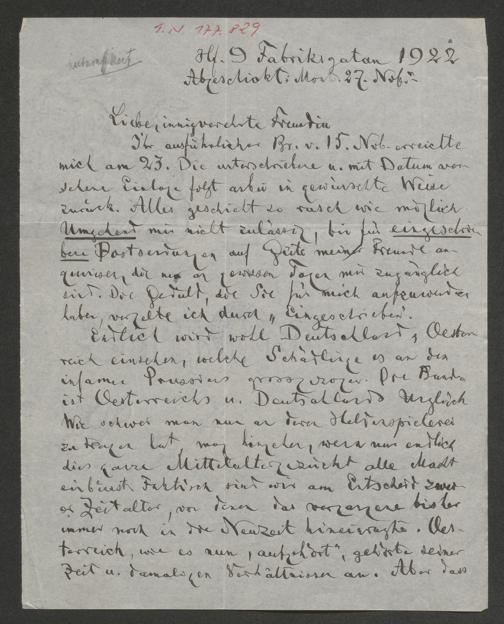 I.N. 177.829
H. 9 Fabriksgatan 1922
Abgeschickt: Mo. 27. Nov.
Liebe, innigverehrte Freundin
Ihr ausführlicher Br. v. 15. Nov. erreichte
mich am 23. Die unterschriebene u. mit Datum ver-
sehene Einlage folgt anbei in gewünschter Weise
zurück. Alles geschieht so rasch wie möglich
Umgehend mir nicht zulässig, bin für eingeschrie-
bene Postsendungen auf Güte meiner Freunde an-
gewiesen, die nur an gewissen Tagen mir zugänglich
sind. Die Geduld, die Sie für mich aufzuwenden
haben, vergelte ich durch „Eingeschrieben.
Endlich wird wohl Deutschland, Oester-
reich einsehen, welche Schädlinge es an den
infamen grossgezogen. Die Bande
ist Oesterreichs u. Deutschlands Unglück
Wie schwer man nun an deren Heldenspielerei
zu tragen hat, mag hingehen, wenn nur endlich
dies ganze Mittelaltergezücht alle Macht
einbüsst. Faktisch sind wir am Entscheid zwei-
er Zeitalter, von denen das vergangene bisher
immer noch in die Neuzeit hineinragte. Oes-
terreich, wie es nun „aufhört", gehörte seiner
Zeit u. damaligen Verhältnissen an. Aber dass